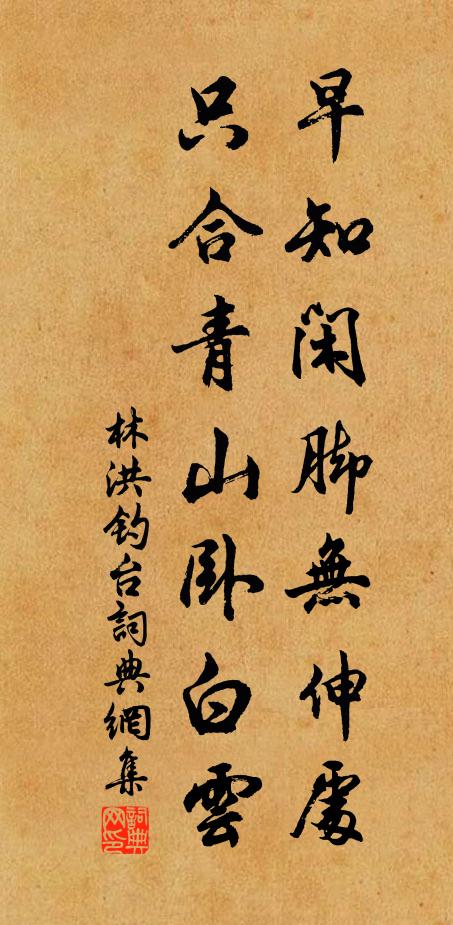 早知閑脚無伸處
只合青山卧白雲
林洪釣台詞典網集
詞典网印